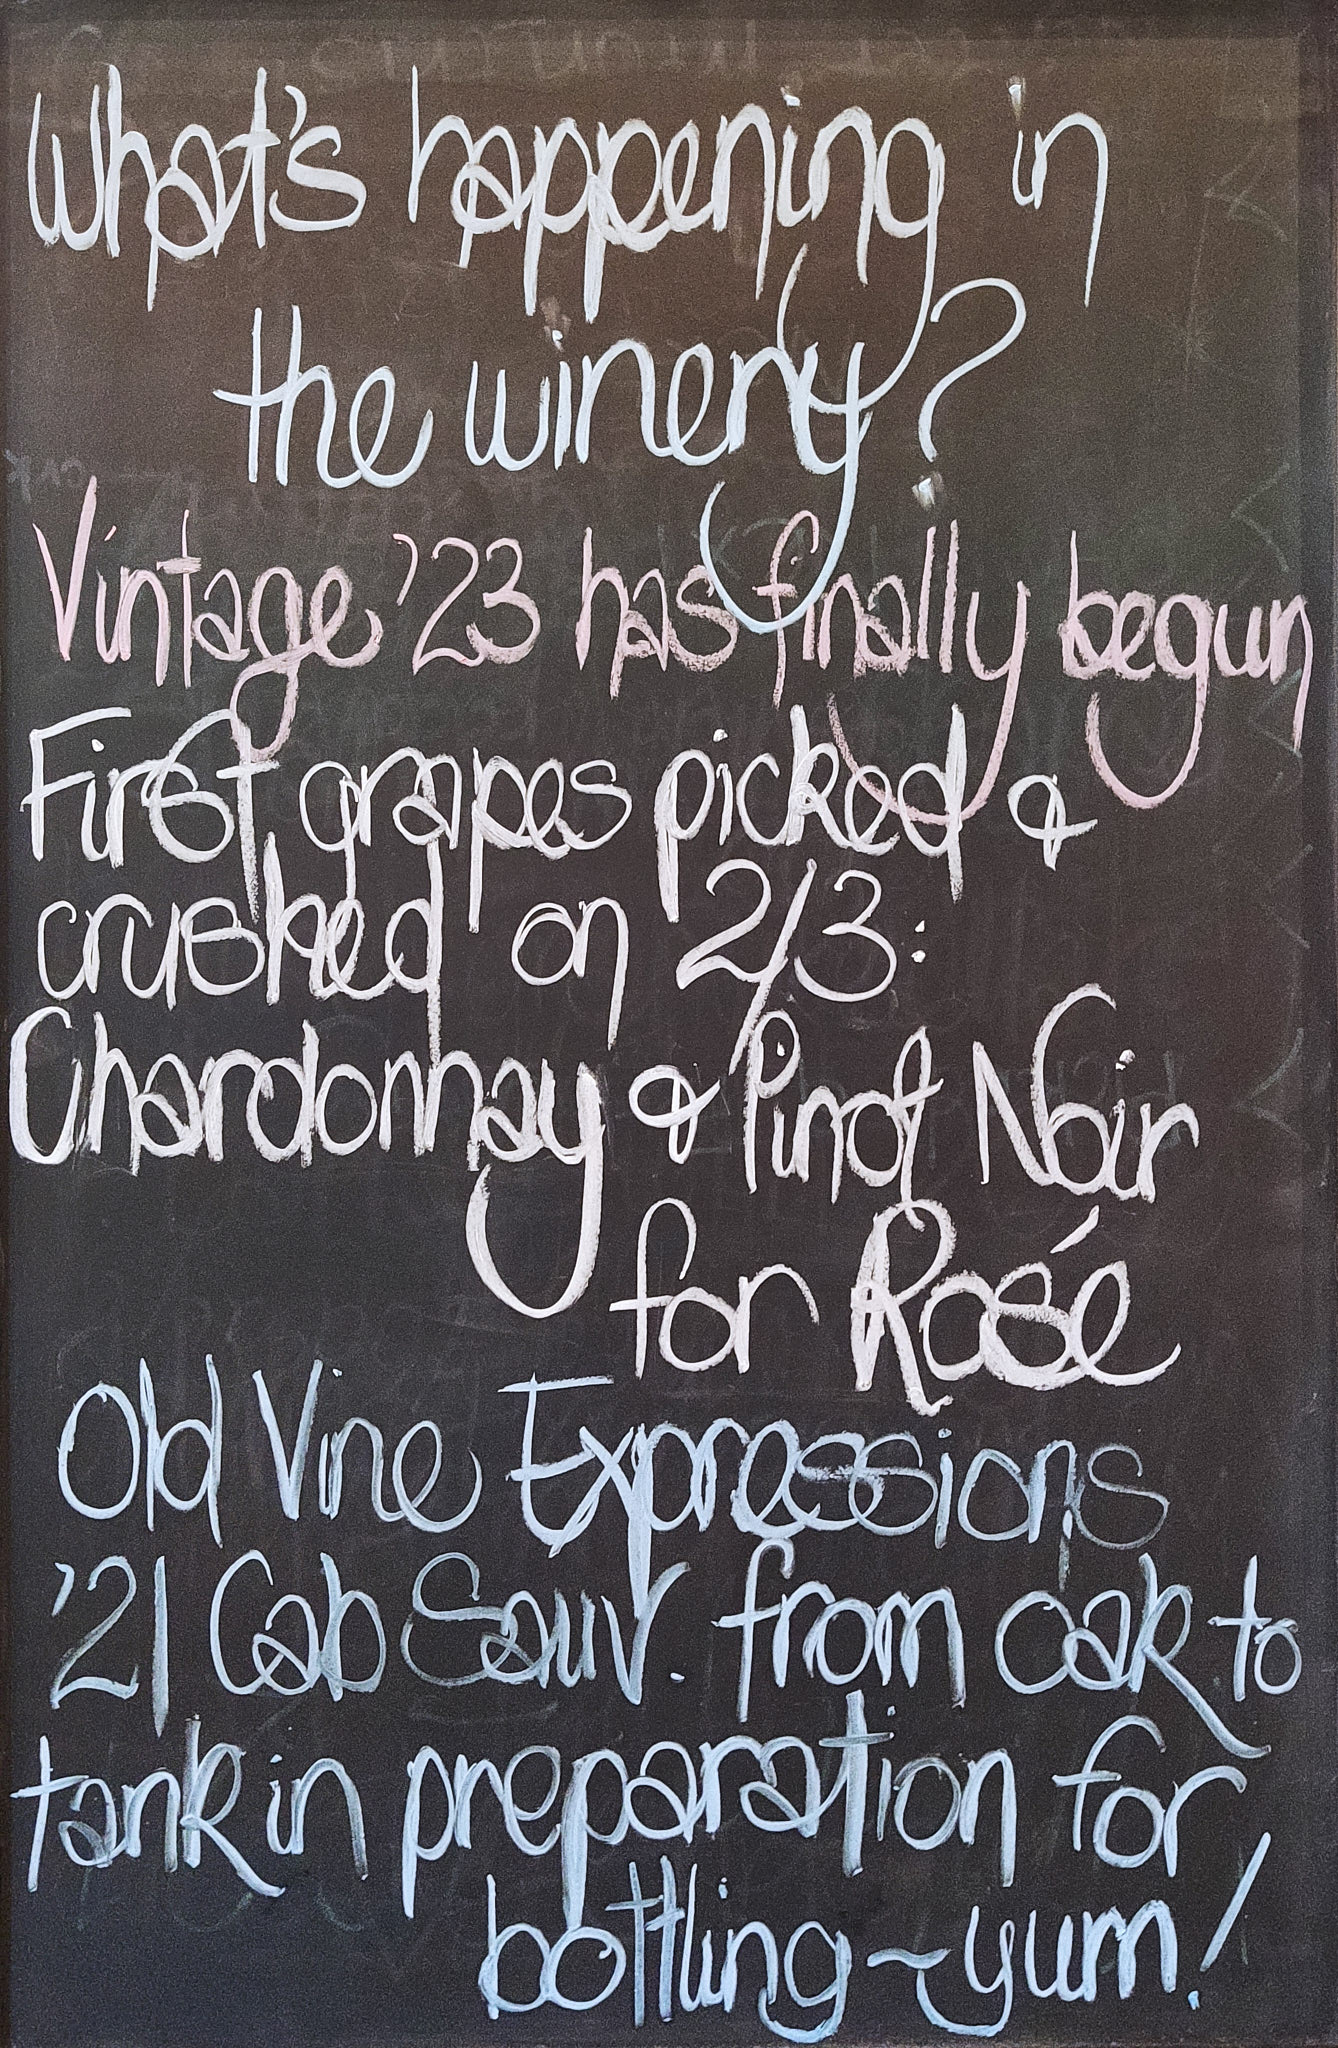 What's happening in
the winery?
Vintage '23 has finally begun
First grapes picked &
crushed on 2/3:
Chardonnay & Pinot Noir
for Rosé
Old Vine Expressions
'21 Cab Sauv. from oak to
tank in preparation for
bottling ~ yum!